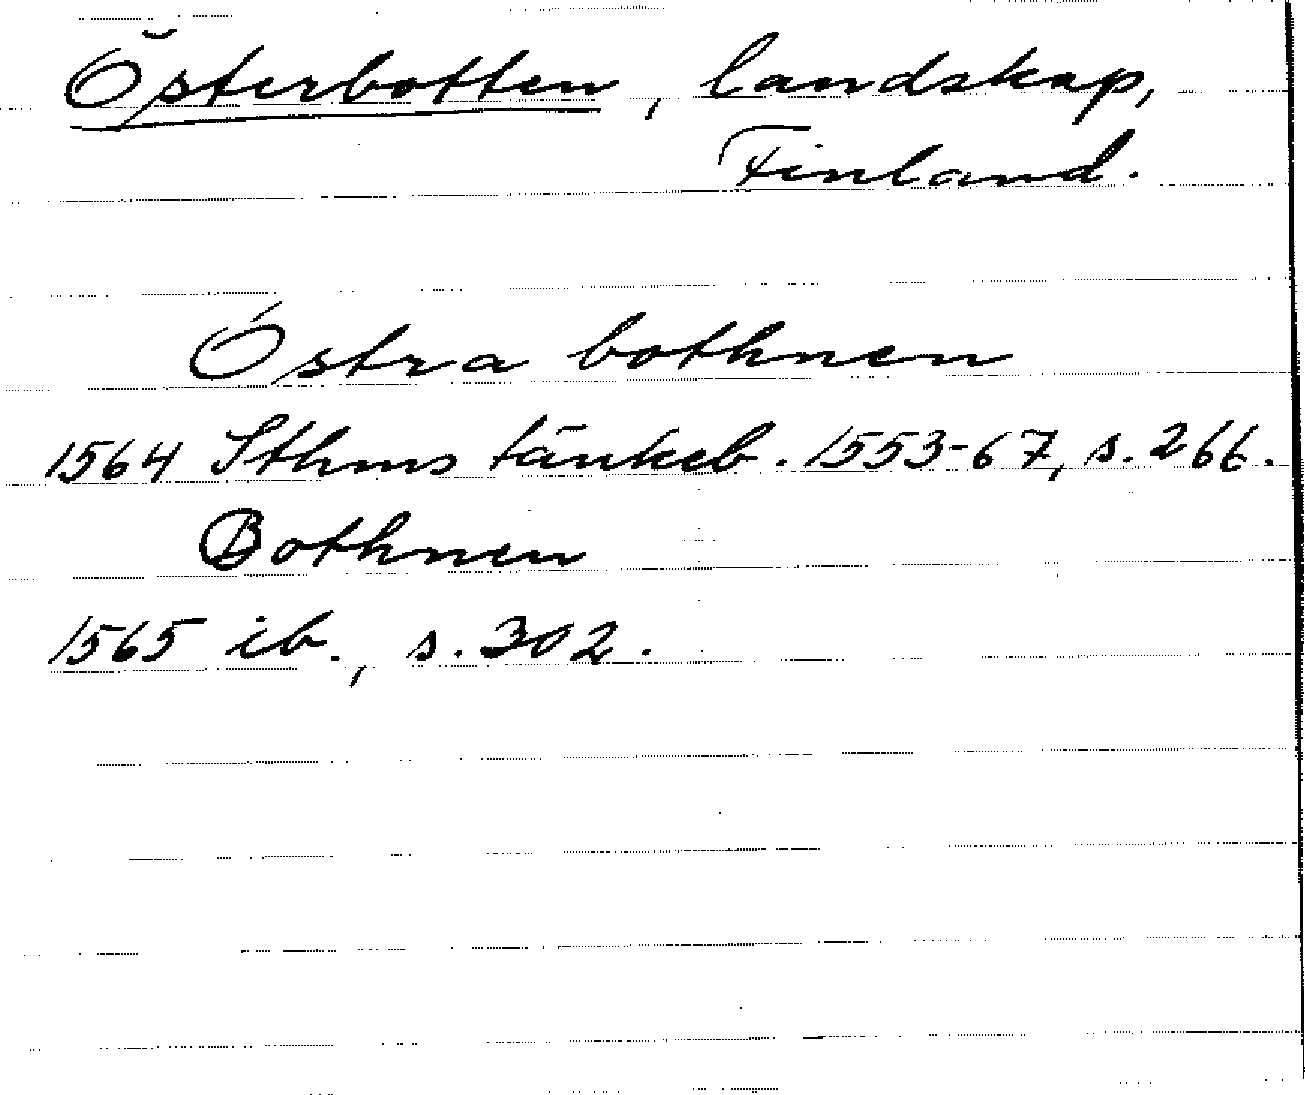 Österbotten, landskap,
Finland.
Östra bothnen
1564 Sthms tänkeb. 1553-67, s. 266.
Bothnen
1565 ib., s. 302.